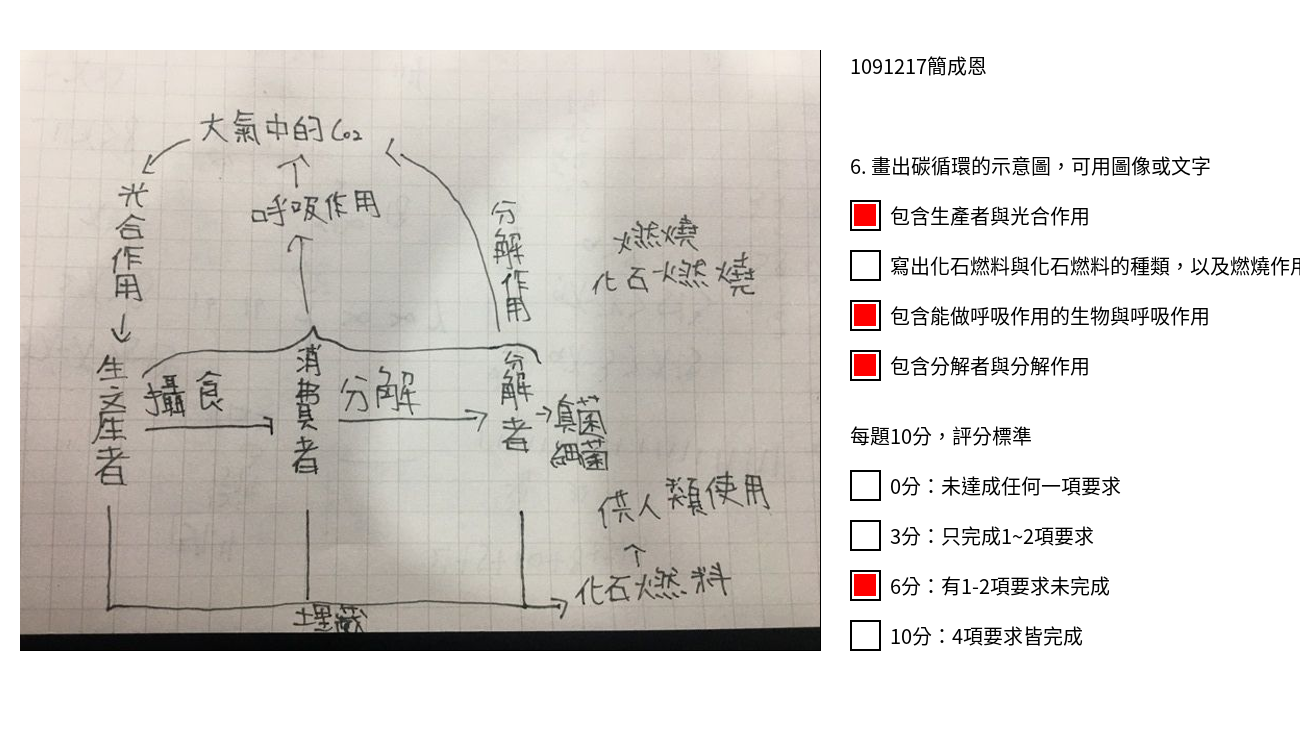 大氣中的CO2
光合作用
呼吸作用
分解作用
燃燒
化石燃燒
生產者
攝食
消費者
分解
分解者
真菌
細菌
供人類使用
化石燃料
埋藏
1091217簡成恩
6. 畫出碳循環的示意圖，可用圖像或文字
包含生產者與光合作用
寫出化石燃料與化石燃料的種類，以及燃燒作用
包含能做呼吸作用的生物與呼吸作用
包含分解者與分解作用
每題10分，評分標準
0分：未達成任何一項要求
3分：只完成1~2項要求
6分：有1-2項要求未完成
10分：4項要求皆完成